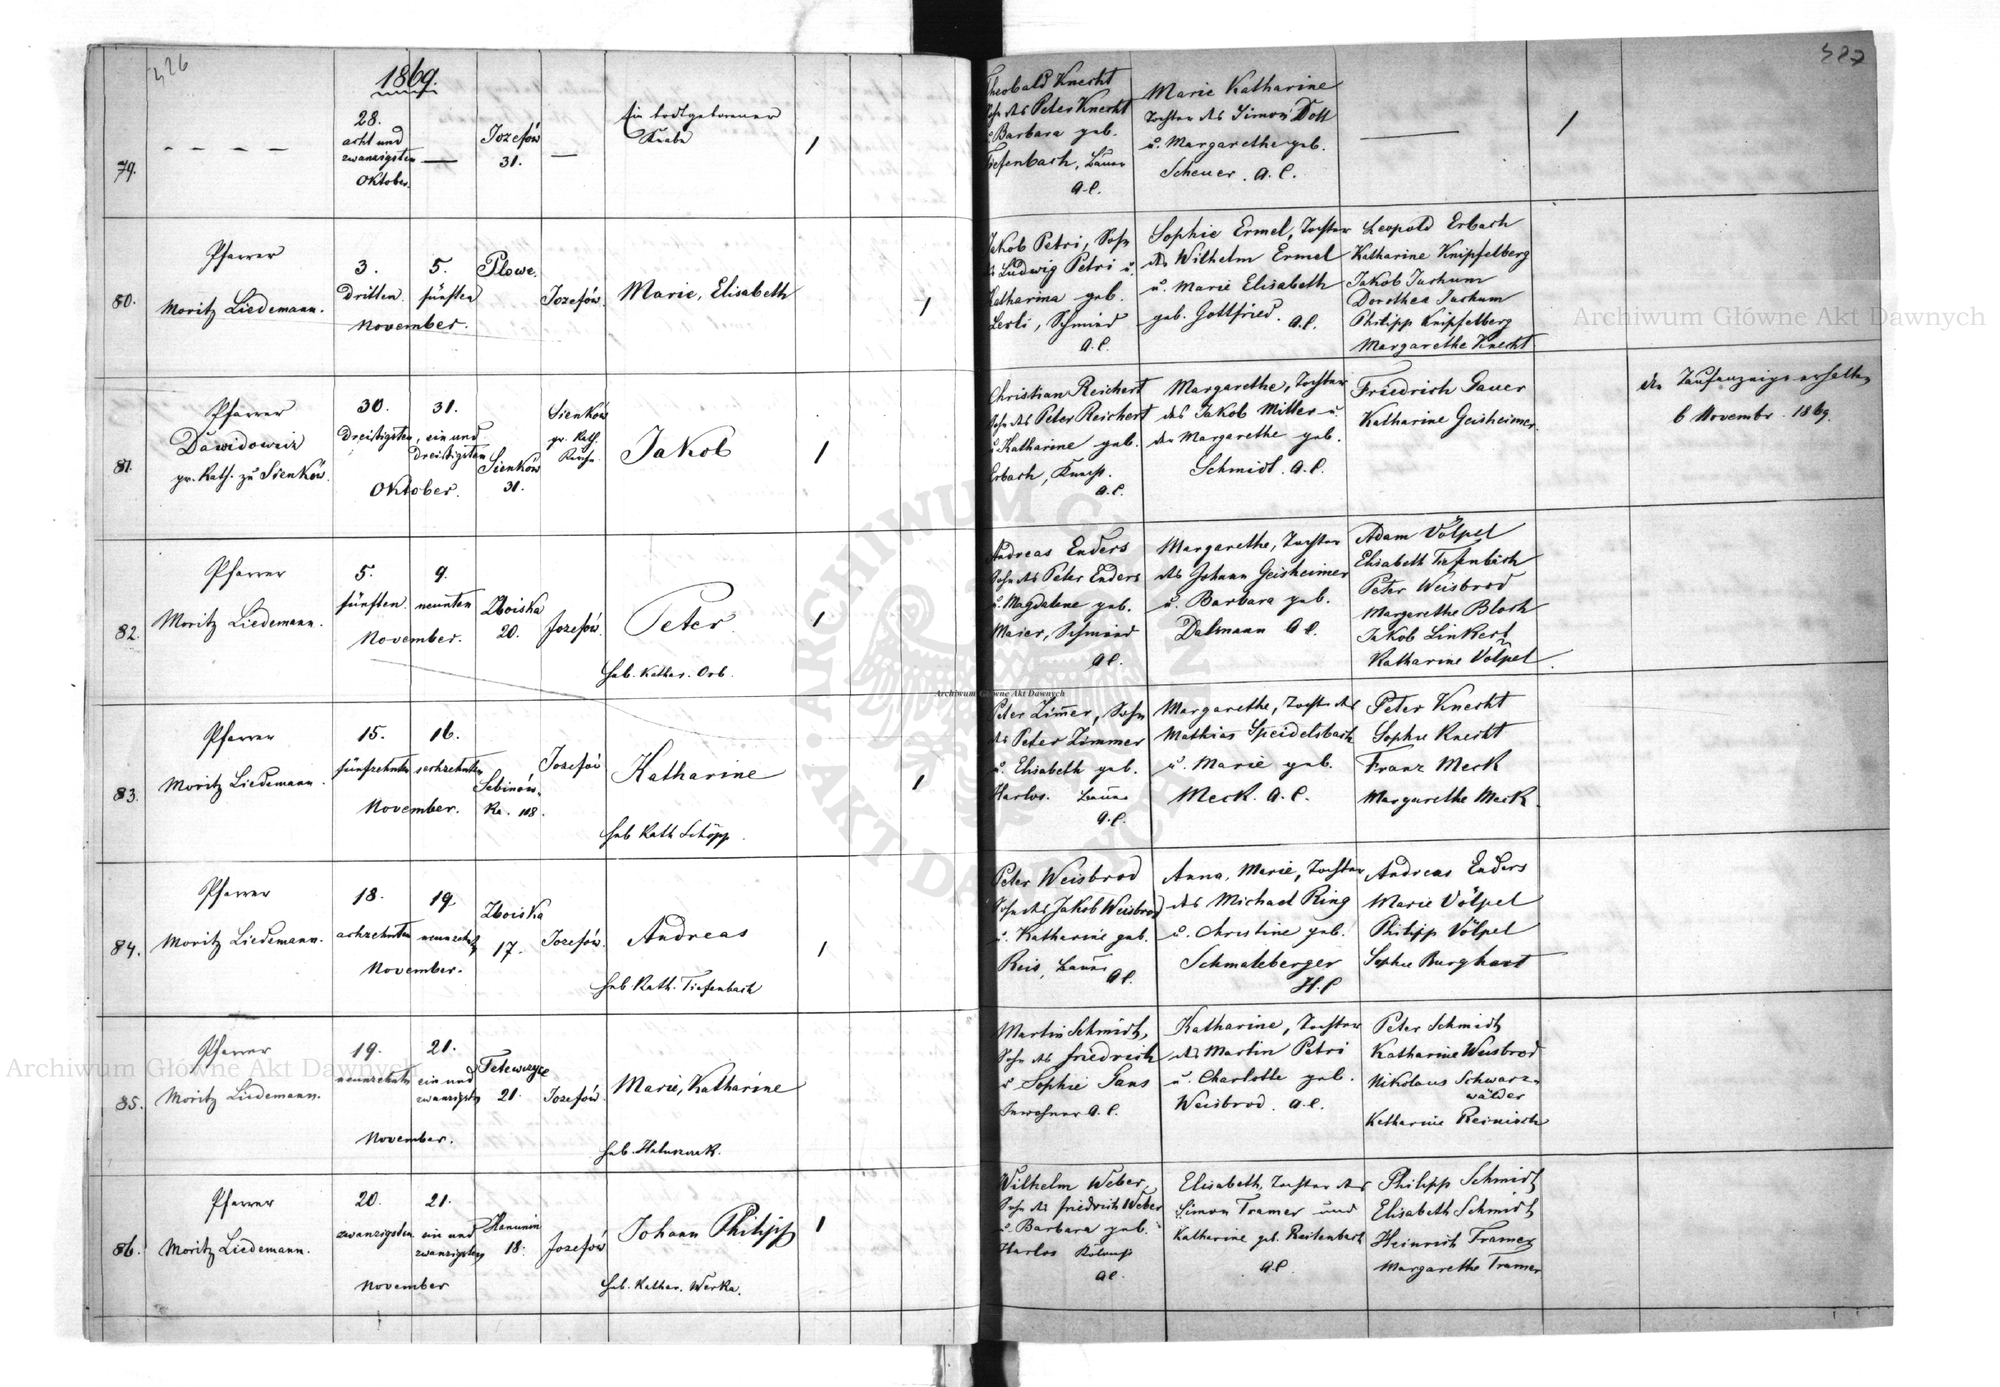 426
1869.
427
79.
28.
acht und
zwanzigsten
Oktober.
Jozefów
31.
Ein todtgeborener
Knabe
1
Theobald Knecht
Sohn des Peter Knecht
u. Barbara geb.
Tiefenbach, Bauer
A.C.
Marie Katharine
Tochter des Simon Dott
u. Margarethe geb.
Scheuer. A.C.
1
80.
Pfarrer
Moritz Liedemann.
3.
dritten
5.
fünften
November.
Plowe.
Jozefów.
Marie, Elisabeth
1
Jakob Petri, Sohn
des Ludwig Petri u.
Katharina geb.
Schmied
A.C.
Sophie Ermel, Tochter
des Wilhelm Ermel
u. Marie Elisabeth
geb. Gottfried. A.C.
Leopold Erbach
Katharine Knipfelberg
Jakob Juchum
Dorothea Juchum
Philipp Knipfelberg
Margarethe Knecht
81.
Pfarrer
Dawidowicz
gr. Kath. zu Sienków.
30.
dreisigsten
31.
ein und
dreisigsten
Oktober.
Sienków
31.
Sienków
gr. Kath.
Kirche
Jakob
1
Christian Reichert
Sohn des Peter Reichert
u. Katharine geb.
Erbach,
A.C.
Margarethe, Tochter
des Jakob Mitter u.
der Margarethe geb.
Schmidt. A.C.
Friedrich Gauer
Katharine Geisheimer.
die Taufanzeige erhalten
6 Novembr. 1869.
82.
Pfarrer
Moritz Liedemann.
5.
fünften
9.
neunten
November.
Zboiska
20.
Jozefów.
Peter.
heb. Kathar. Orb.
1
Andreas Enders
Sohn des Peter Enders
u. Magdalene geb.
Maier, Schmied
A.C.
Margarethe, Tochter
des Johann Geisheimer
u. Barbara geb.
Dalmann A.C.
Adam Völpel
Elisabeth Tiefenbach
Peter Weisbrod
Margarethe Bloch
Jakob Linkert
Katharine Völpel.
83.
Pfarrer
Moritz Liedemann.
15.
fünfzehnten
16.
sechzehnten
November.
Sebinów-
ka. 108.
Jozefów
Katharine
heb. Kath Schöpp.
1
Peter Zimmer, Sohn
des Peter Zimmer
u. Elisabeth geb.
Harlos. Bauer
A.C.
Margarethe, Tocht. des
Mathias Speidelsbach
u. Marie geb.
Meck. A.C.
Peter Knecht
Sophie Knecht
Franz Meck
Margarethe Meck.
84.
Pfarrer
Moritz Liedemann.
18.
achzehnten
19.
neunzehnten
November.
Zboiska
17.
Jozefów.
Andreas
heb. Kath. Tiefenbach
1
Peter Weisbrod
Sohn des Jakob Weisbrod
u. Katharine geb.
Reis, Bauer
A.C.
Anna, Marie, Tochter
des Michael Ring
u. Christine geb.
Schmalzberger
H.C.
Andreas Enders
Marie Völpel
Philipp Völpel
Sophie Burghart
85.
Pfarrer
Moritz Liedemann.
19.
neunzehnten
21.
ein und
zwanzigsten
November.
Tetewczyce
21.
Jozefów.
Marie, Katharine
heb.
Martin Schmidt,
Sohn des Friedrich
u. Sophie Gans
Inwohner A.C.
Katharine, Tochter
des Martin Petri
u. Charlotte geb.
Weisbrod. A.C.
Peter Schmidt
Katharine Weisbrod
Nikolaus Schwarz-
wälder
Katharine Reinisch
86.
Pfarrer
Moritz Liedemann.
20.
zwanzigsten
21.
ein und
zwanzigsten
November
Hanunin
18.
Jozefów
Johann Philipp
heb. Kathar. Werka.
1
Wilhelm Weber,
Sohn des Friedrich Weber
u. Barbara geb.
Harlos
A.C.
Elisabeth, Tochter des
Simon Tramer und
Katharine geb. Reitenbach
A.C.
Philipp Schmidt
Elisabeth Schmidt
Heinrich Tramer
Margarethe Tramer
Archiwum Główne Akt Dawnych
Archiwum Główne Akt Dawnych
Archiwum Główne Akt Dawnych
ARCHIWUM GŁÓWNE AKT DAWNYCH